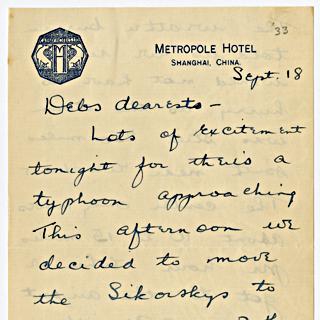 '33
METROPOLE HOTEL
SHANGHAI, CHINA.
Sept. 18
Debs dearests –
Lots of excitement
tonight for theris a
typhoon approaching
This afternoon we
decided to move
the Sikorskys to